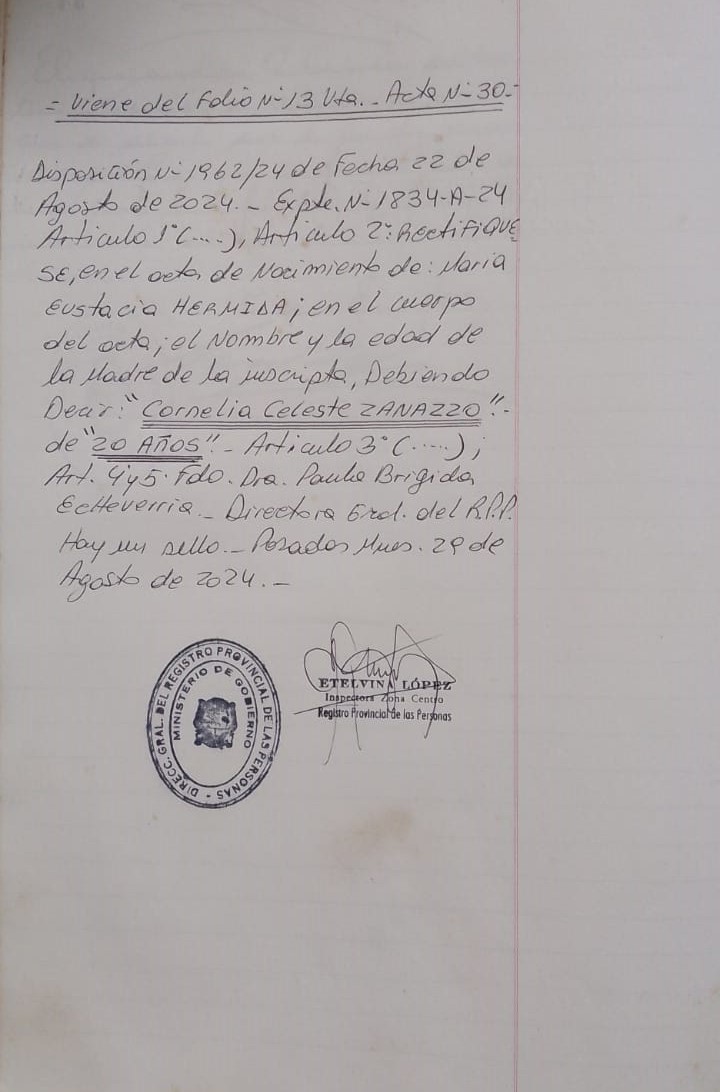 = Viene del Folio N- 13 Vta. - Acta N- 30.-
Disposición N- 1962/24 de Fecha 22 de
Agosto de 2024. - Expte. N- 1834-A-24
Artículo 1° (....), Artículo 2°: RECTIFIQUE
SE, en el acta de Nacimiento de: María
Eustacia HERMIDA; en el cuerpo
del acta; el Nombre y la edad de
la Madre de la inscripta, Debiendo
Decir: "Cornelia Celeste ZANAZZO".-
de "20 AÑOS".- Artículo 3° (.....);
Art. 4 y 5. Fdo. Dra. Paula Brigida
Echeverria.- Directora Gral. del R.P.P.
Hay un sello.- Posadas Mnes. 29 de
Agosto de 2024.-
DIRECC. GRAL. DEL REGISTRO PROVINCIAL DE LAS PERSONAS
MINISTERIO DE GOBIERNO
ETELVINA LÓPEZ
Inspectora Zona Centro
Registro Provincial de las Personas